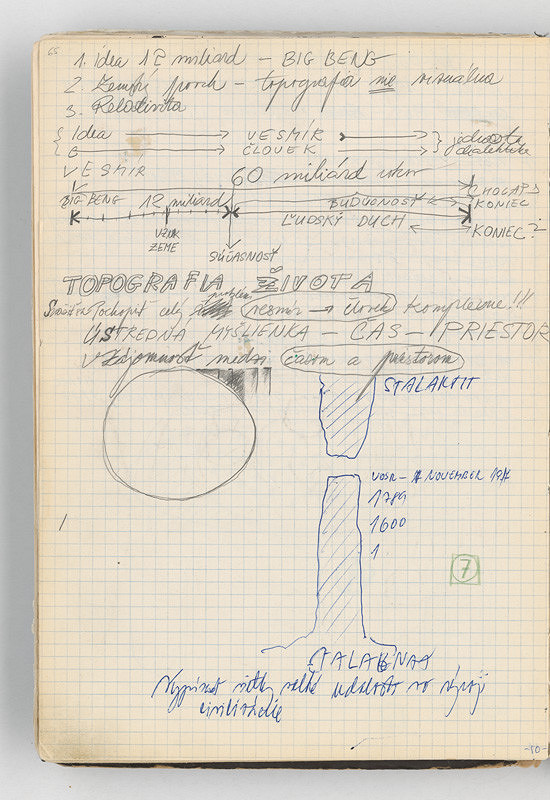 65
1. idea 12 miliard – BIG BENG
2. Zemský povrch – topografia nie vizuálna
3. Relativita
{ Idea → VESMÍR → } jednota
{ → ČLOVEK → } dialektika
VESMÍR 60 miliárd rokov
BIG BENG 12 miliard BUDÚCNOSŤ KONIEC
ĽUDSKÝ DUCH KONIEC?
VZNIK
ZEME
SÚČASNOSŤ
TOPOGRAFIA ŽIVOTA
problém
Pochopiť celý vesmír → človek komplexne!!!
ÚSTREDNÁ MYŠLIENKA – ČAS – PRIESTOR
Vzájomnosť medzi časom a priestorom
STALAKTIT
VOSR – NOVEMBER 1917
1789
1600
1
7
všetky veľké udalosti vo vývoji
civilizácie
-10-